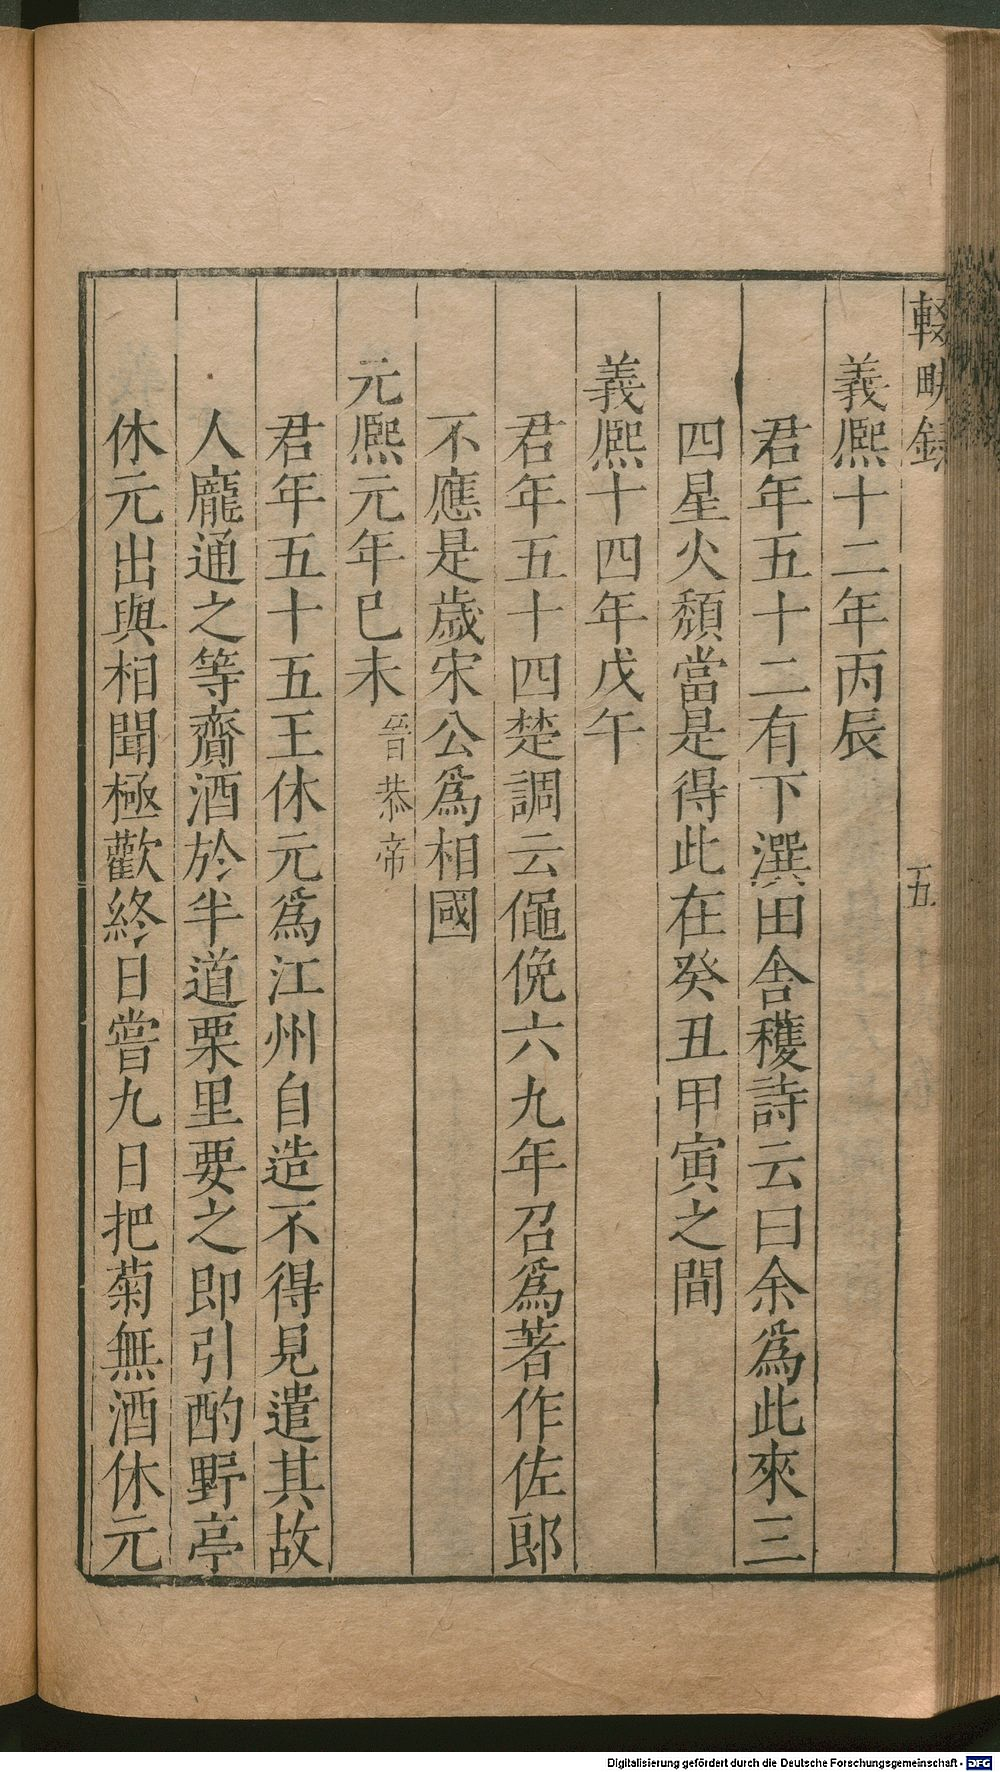 輟畊録
五
義熈十二年丙辰
君年五十二有下潠田舎穫詩云曰余爲此來三
四星火頹當是得此在癸丑甲寅之間
義熈十四年戊午
君年五十四楚調云僶俛六九年召爲著作佐郎
不應是歲宋公爲相國
元熈元年已未晉恭帝
君年五十五王休元爲江州自造不得見遣其故
人龐通之等齎酒於半道栗里要之即引酌野亭
休元出與相聞極歡終日嘗九日把菊無酒休元
Digitalisierung gefördert durch die Deutsche Forschungsgemeinschaft - DFG